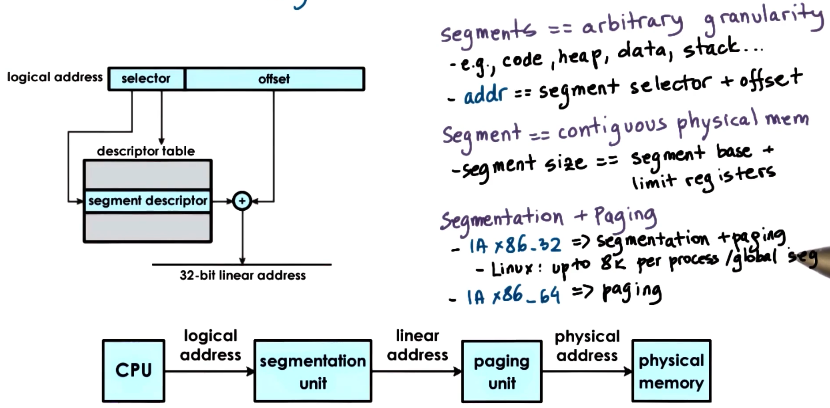 logical address
selector
offset
descriptor table
segment descriptor
+
32-bit linear address
segments == arbitrary granularity
- e.g., code, heap, data, stack...
- addr == segment selector + offset
Segment == contiguous physical mem
- segment size == segment base +
limit registers
Segmentation + Paging
- IA x86_32 => segmentation + paging
- Linux: up to 8K per process/global seg
- IA x86_64 => paging
CPU
logical
address
segmentation
unit
linear
address
paging
unit
physical
address
physical
memory